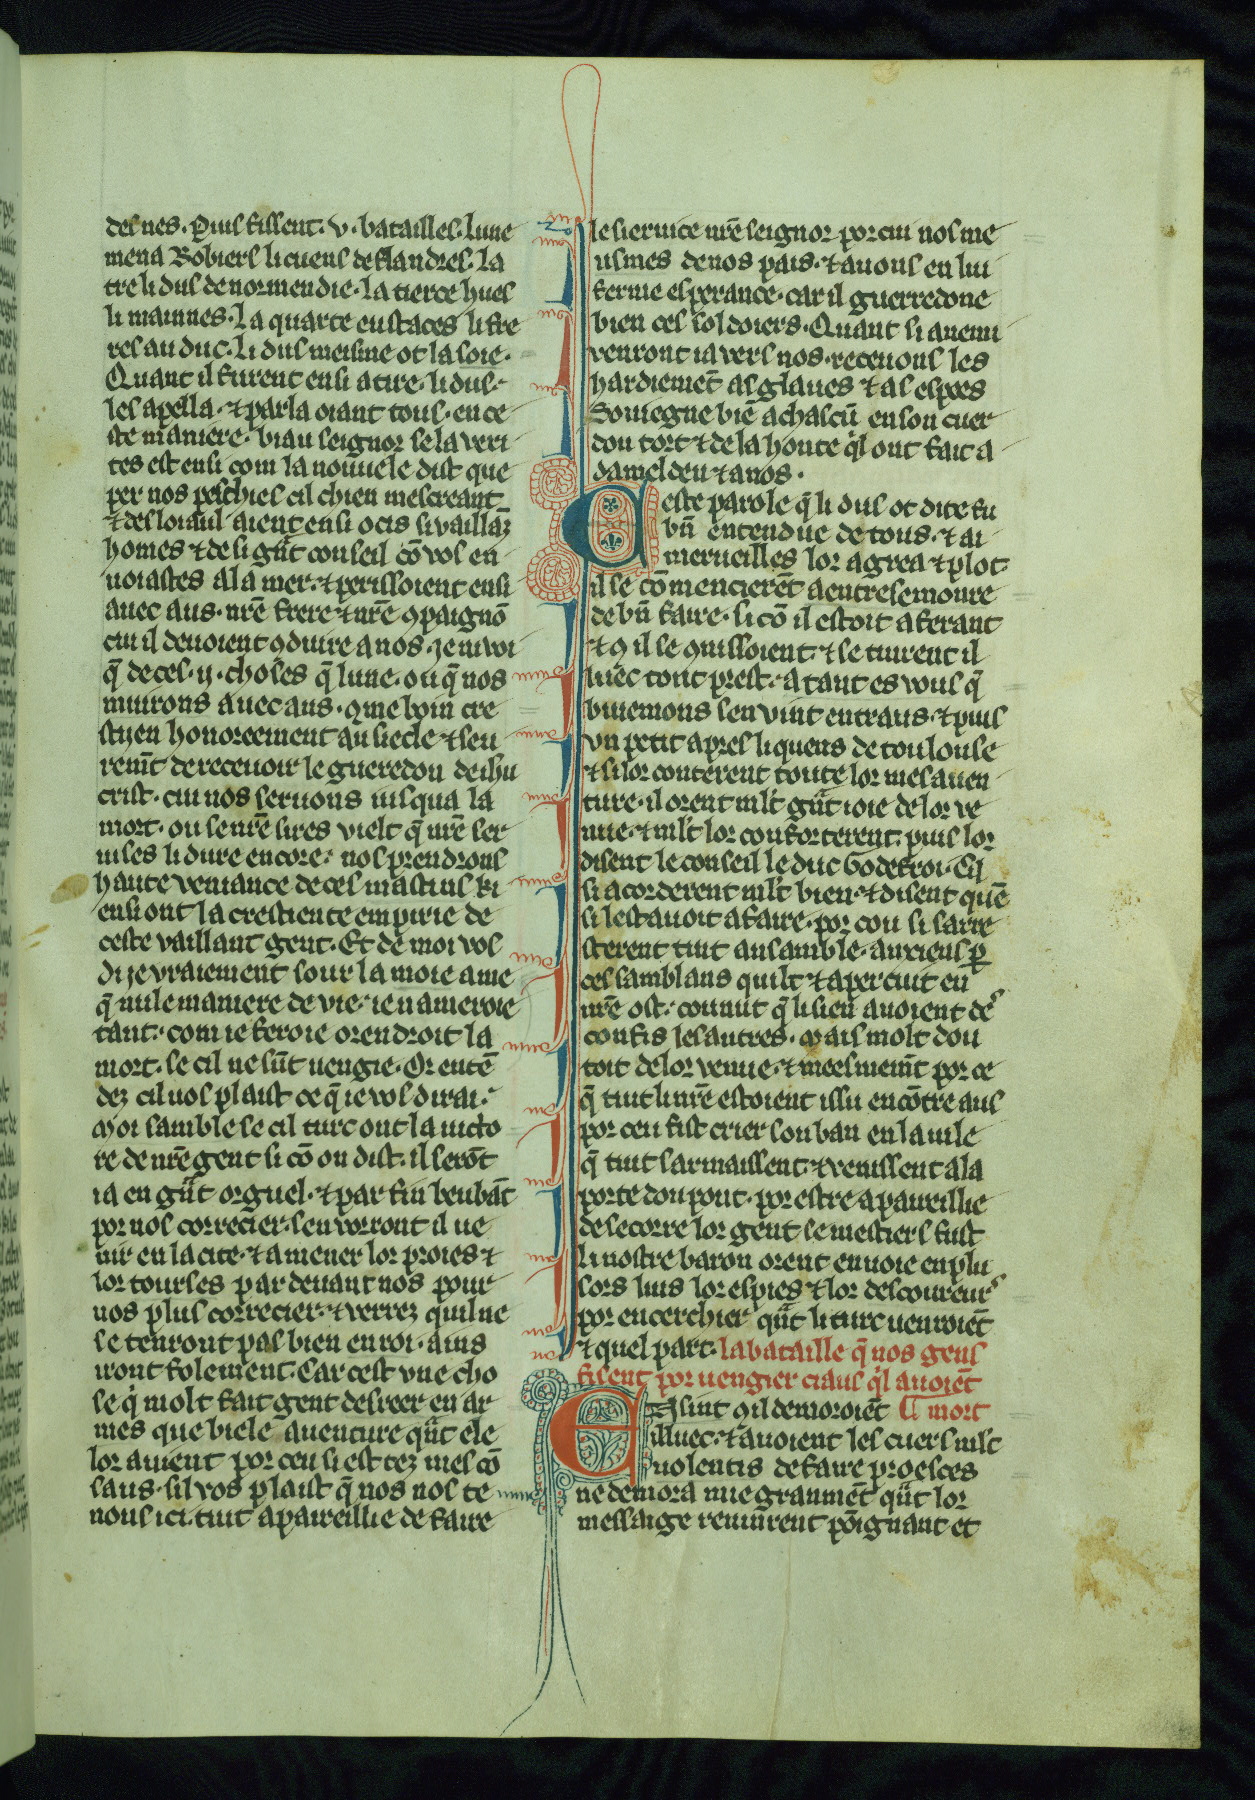 des nes. Puis fissent .v. batailles. lune
mena Robiers li cuens de flandres. La
tre li dus de normendie. La tierce hues
li mainnes. La quarte eustaces li fre
res au duc. Li dus meisme ot la soie.
Quant il furent ensi atire. li dus
les apella. ⁊ parla oiant tous. en ce
ste maniere. biau seignor se la veri
tes est ensi com la nouuele dist que
per nos peschies cil chien mescreant
⁊ desloiaul aient ensi ocis si vaillaz
homes ⁊ de si gͣnt conseil cō vos en
uoiastes a la mer. ⁊ perissoient ensi
auec aus. nr̄e frere ⁊ nr̄e ꝯpaignō
cui il deuoient ꝯduire a nos. Je ni voi
q̄ de ces .ij. choses q̄ lune. ou q̄ nos
muirons auec aus. ꝯme boin cre
stijen honoreement au siecle ⁊ seu
remt̄ de receuoir le gueredon de ihu
crist. cui nos seruons iusqua la
mort. ou se nr̄e sires vielt q̄ nr̄e ser
uises li dure encore. nos prendrons
haute veniance de ces mastins ki
ensi ont la crestiente empirie de
ceste vaillant gent. Et de moi vos
di je vraiement sour la moie ame
q̄ nule maniere de vie. ie nameroie
tant. com ie feroie orendroit la
mort. se cil ne sūt uengie. Or entē
dez cil uos plaist ce q̄ ie vos dirai.
Moi samble se cil turc ont la uicto
re de nr̄e gent si cō on dist. il serōt
ia en gͣnt orguel. ⁊ par fin beubāt
por nos correcier. sen vorront il ue
nir en la cite. ⁊ amener lor proies ⁊
lor tourses par deuant nos pour
nos plus correcier. ⁊ verrez quil ne
se tenront pas bien en roi. ains
iront folement. Car cest vne cho
se q̇ molt fait gent desreer en ar
mes que biele auenture qͣnt ele
lor auient por ceu si est tez mes cō
saus. sil vos plaist q̄ nos nos te
nons ici. tuit apareillie de faire
le seruice nr̄e seignor por cui nos me
usmes de nos pais. ⁊ auons en lui
ferme esperance. car il guerredone
bien ces soldoiers. Quant si anemi
venront ia vers nos. receuons les
hardiemēt as glaues ⁊ as espees
Souiegne biē a chascū en son cuer
dou tort ⁊ de la honte q̇l ont fait a
dameldeu ⁊ a nos.
Ceste parole q̄ li dus ot dite fu
bn̄ entendue de tous. ⁊ a
merueilles lor agrea ⁊ plot
il se cōmencierēt a entresemoure
de bn̄ faire. si cō il estoit aferant
⁊ ꝯ il se ꝯnissoient. ⁊ se tinrent il
luec tout prest. A tant es vous q̄
buiemons sen vint entraus. ⁊ puis
vn petit apres li quens de toulouse
⁊ si lor conterent toute lor mesauen
ture. il orent ml't gͣnt ioie de lor ve
nue. ⁊ ml't lor conforterent. puis lor
disent le conseil le duc Godefroi. Cil
si acorderent ml't bien. ⁊ disent quē
si lestauoit a faire. por cou si sarre
sterent tuit ansamble. auxiens ꝑ
ces samblans quilt ⁊ aperciut en
nr̄e ost. connut q̄ li sien auoient de
confis les autres. Mais molt dou
toit de lor venue. ⁊ meesmemt̄ por ce
q̄ tuit li nr̄e estoient issu encōtre aus
por ceu fist crier son ban en la uile
q̄ tuit sarmaissent. ⁊ venissent a la
porte dou pont. por estre apareillie
de secorre lor gent se mestiers fust
Li nostre baron orent enuoie en plu
sors lius lor espies ⁊ lor descoureurs
por encerchier qͣnt li turc uenroiēt
⁊ quel part. la bataille q̄ nos gens
fisent por uengier ciaus q̇l auoiēt
Ensint ꝯ il demoroiēt ¶ mort
illuec. ⁊ auoient les cuers ml't
uolentis de faire proesces
ne demora mie granmēt qͣnt lor
messaige reuinrent poignant et